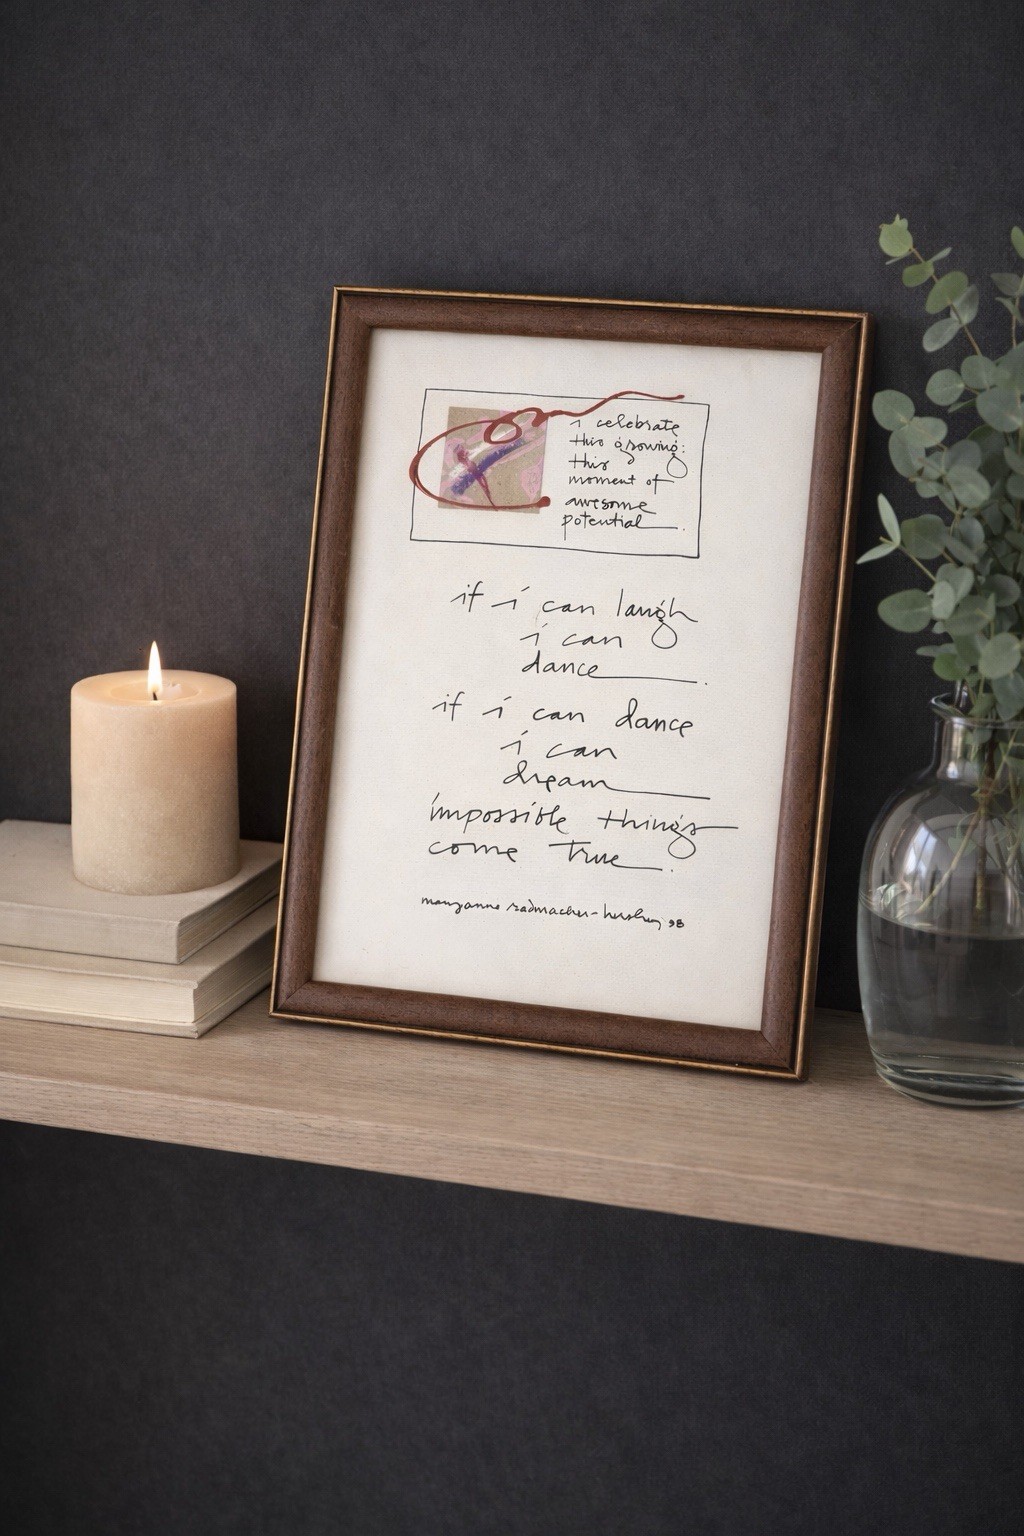 i celebrate
this growing:
this
moment of
awesome
potential.
if i can laugh
i can
dance.
if i can dance
i can
dream
impossible things
come true.
maryanne radmacher-hershey 98